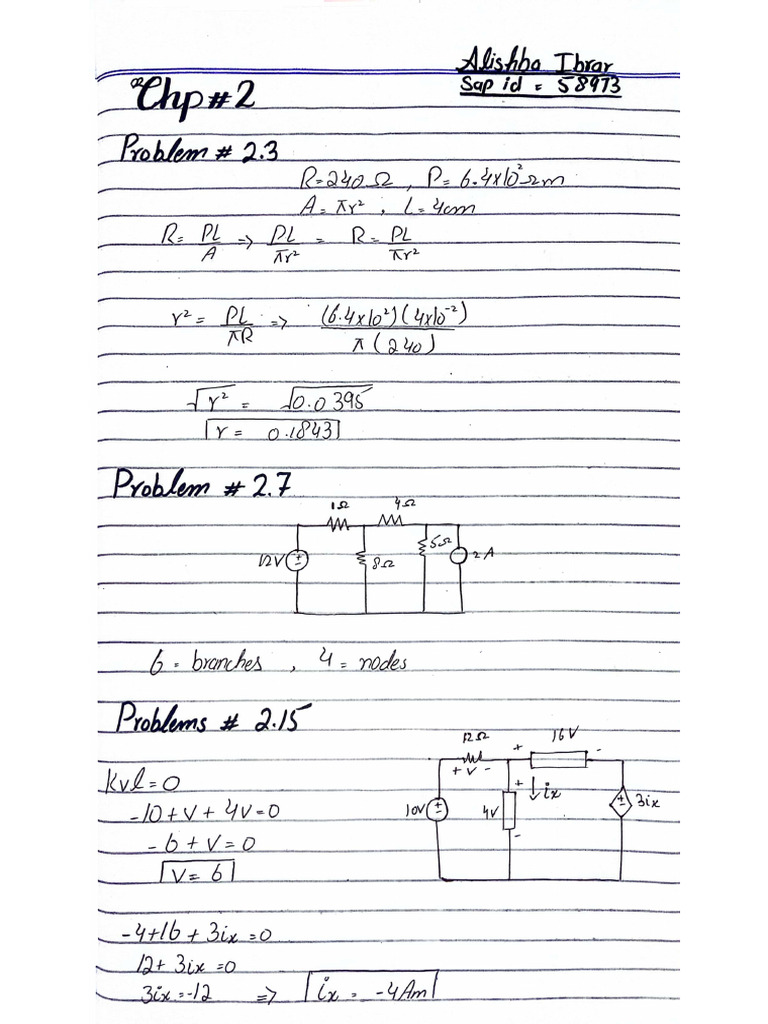 Alishba Ibrar
Sap id = 58973
Chp#2
Problem # 2.3
R=240Ω , P=6.4x10²Ωm
A=πr² , L=4cm
R= PL/A => PL/πr² = R= PL/πr²
r² = PL/πR => (6.4x10²)(4x10⁻²)/π(240)
√r² = √0.0395
r= 0.1843
Problem # 2.7
1Ω 4Ω
12V 8Ω 5Ω 2A
6 = branches , 4 = nodes
Problems # 2.15
12Ω + 16V -
+ v -
Kvl=0
-10+v+4v=0
10v + 4v - ix 3ix
-6+v=0
v= 6
-4+16+3ix=0
12+3ix=0
3ix=-12 => ix = -4Am